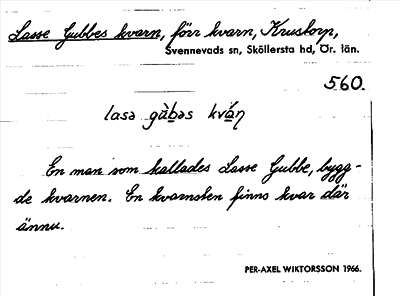 Lasse Gubbes kvarn, förr kvarn, Krustorp,
Svennevads sn, Sköllersta hd, Ör. län.
560.
lasə gùbəs kváṇ
En man som kallades Lasse Gubbe, bygg-
de kvarnen. En kvarnsten finns kvar där
ännu.
PER-AXEL WIKTORSSON 1966.